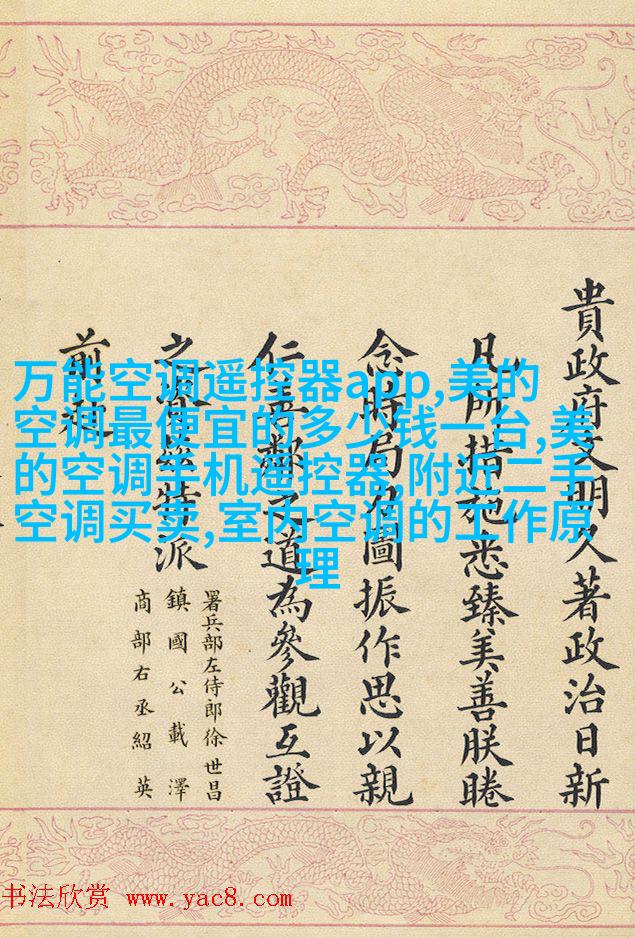 貴政府文明久著政治日新
凡所措施悉臻美善朕睠
念時局力圖振作思以親
仁善鄰之道為參觀互證
之資茲特派
署兵部左侍郎徐世昌
鎮國公載澤
商部右丞紹英
前
万能空调遥控器app,美的
空调最便宜的多少钱一台,美
的空调手机遥控器,附近二手
空调买卖,室内空调的工作原
理
书法欣赏 www.yac8.com